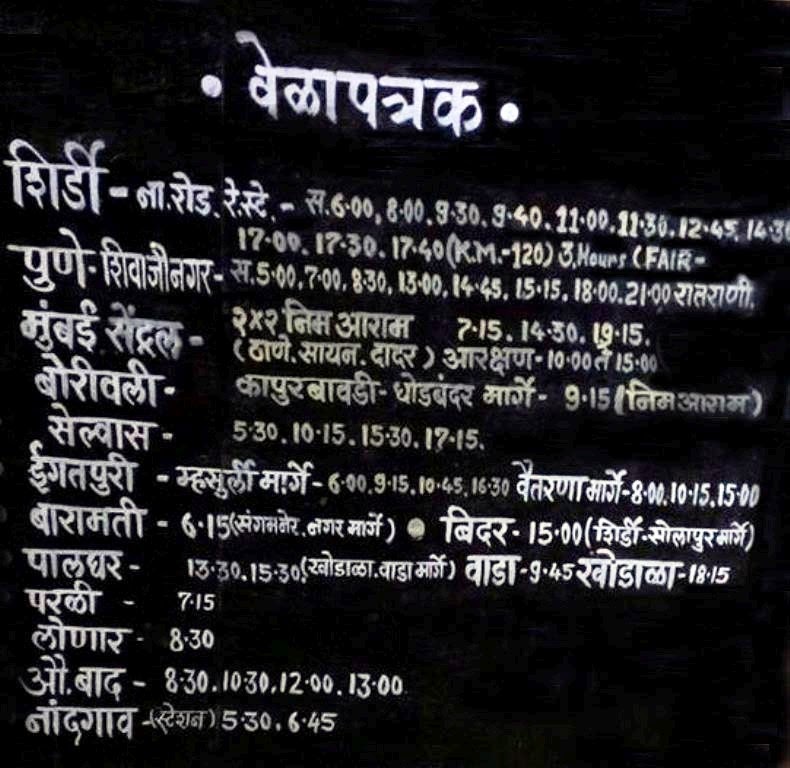 • वेळापत्रक •
शिर्डी - ना.रोड.रे.स्टे. - स.6.00, 8.00.9.30.9.40.11.00.11.30.12.45.14.30
17.00.17.30.17.40(K.M.-120) 3.Hours (FAIR-
पुणे-शिवाजीनगर-स.5.00,7.00,8.30,13.00,14.45,15.15,18.00.21.00 रातराणी.
मुंबई सेंट्रल - २×२ निम आराम 7.15.14.30.19.15.
(ठाणे.सायन.दादर) आरक्षण-10.00ते 15.00
बोरीवली- कापुरबावडी-घोडबंदर मार्गे- 9.15(निमआराम)
सेल्वास - 5.30.10.15.15.30.17.15.
ईगतपुरी - म्हसुर्ली मार्गे-6.00.9.15.10.45.16.30 वैतरणा मार्गे-8.00.10.15.15.00
बारामती - 6.15(संगमनेर.नगर मार्गे) ● बिदर- 15.00(शिर्डी-सोलापुर मार्गे)
पालघर- 13.30.15.30(खोडाळा.वाडा मार्गे) वाडा-9.45 खोडाळा-18.15
परळी - 7.15
लोणार- 8.30
औ.बाद - 8.30.10.30.12.00.13.00
नांदगाव-(स्टेशन) 5.30.6.45